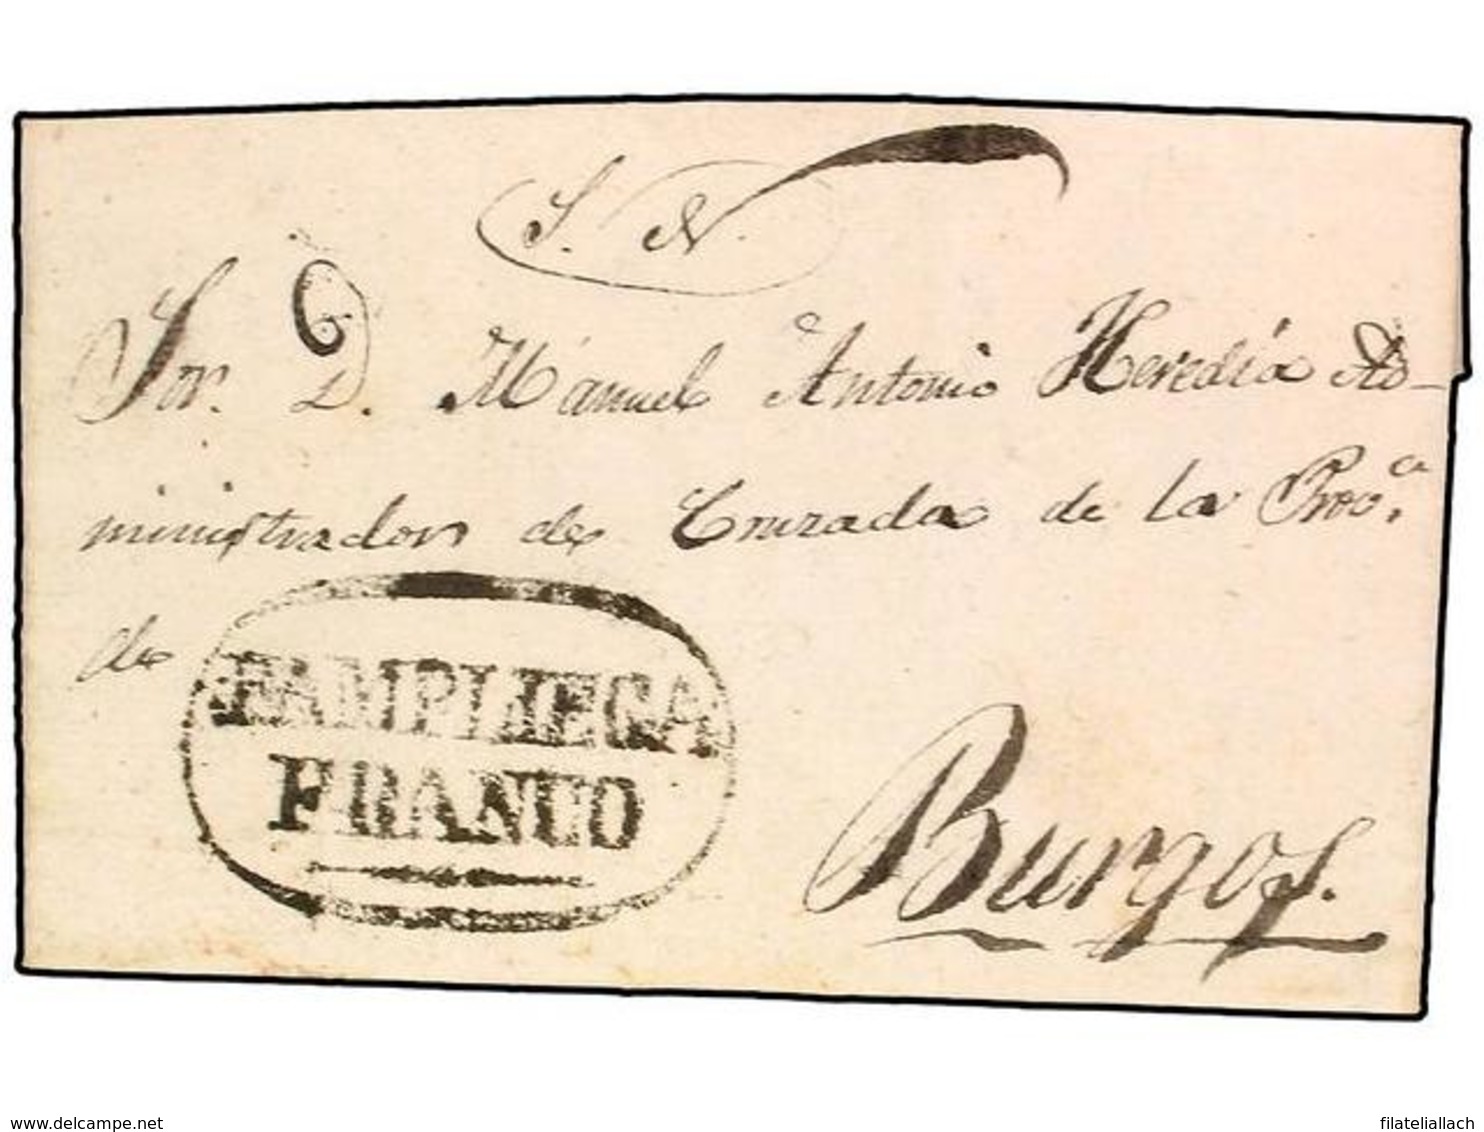 S. N.
Sor. D. Manuel Antonio Heredia Ad-
ministrador de Cruzada de la Provᵃ.
de
PAMPLIEGA
FRANCO
Burgos.
delcampe.net
filateliallach